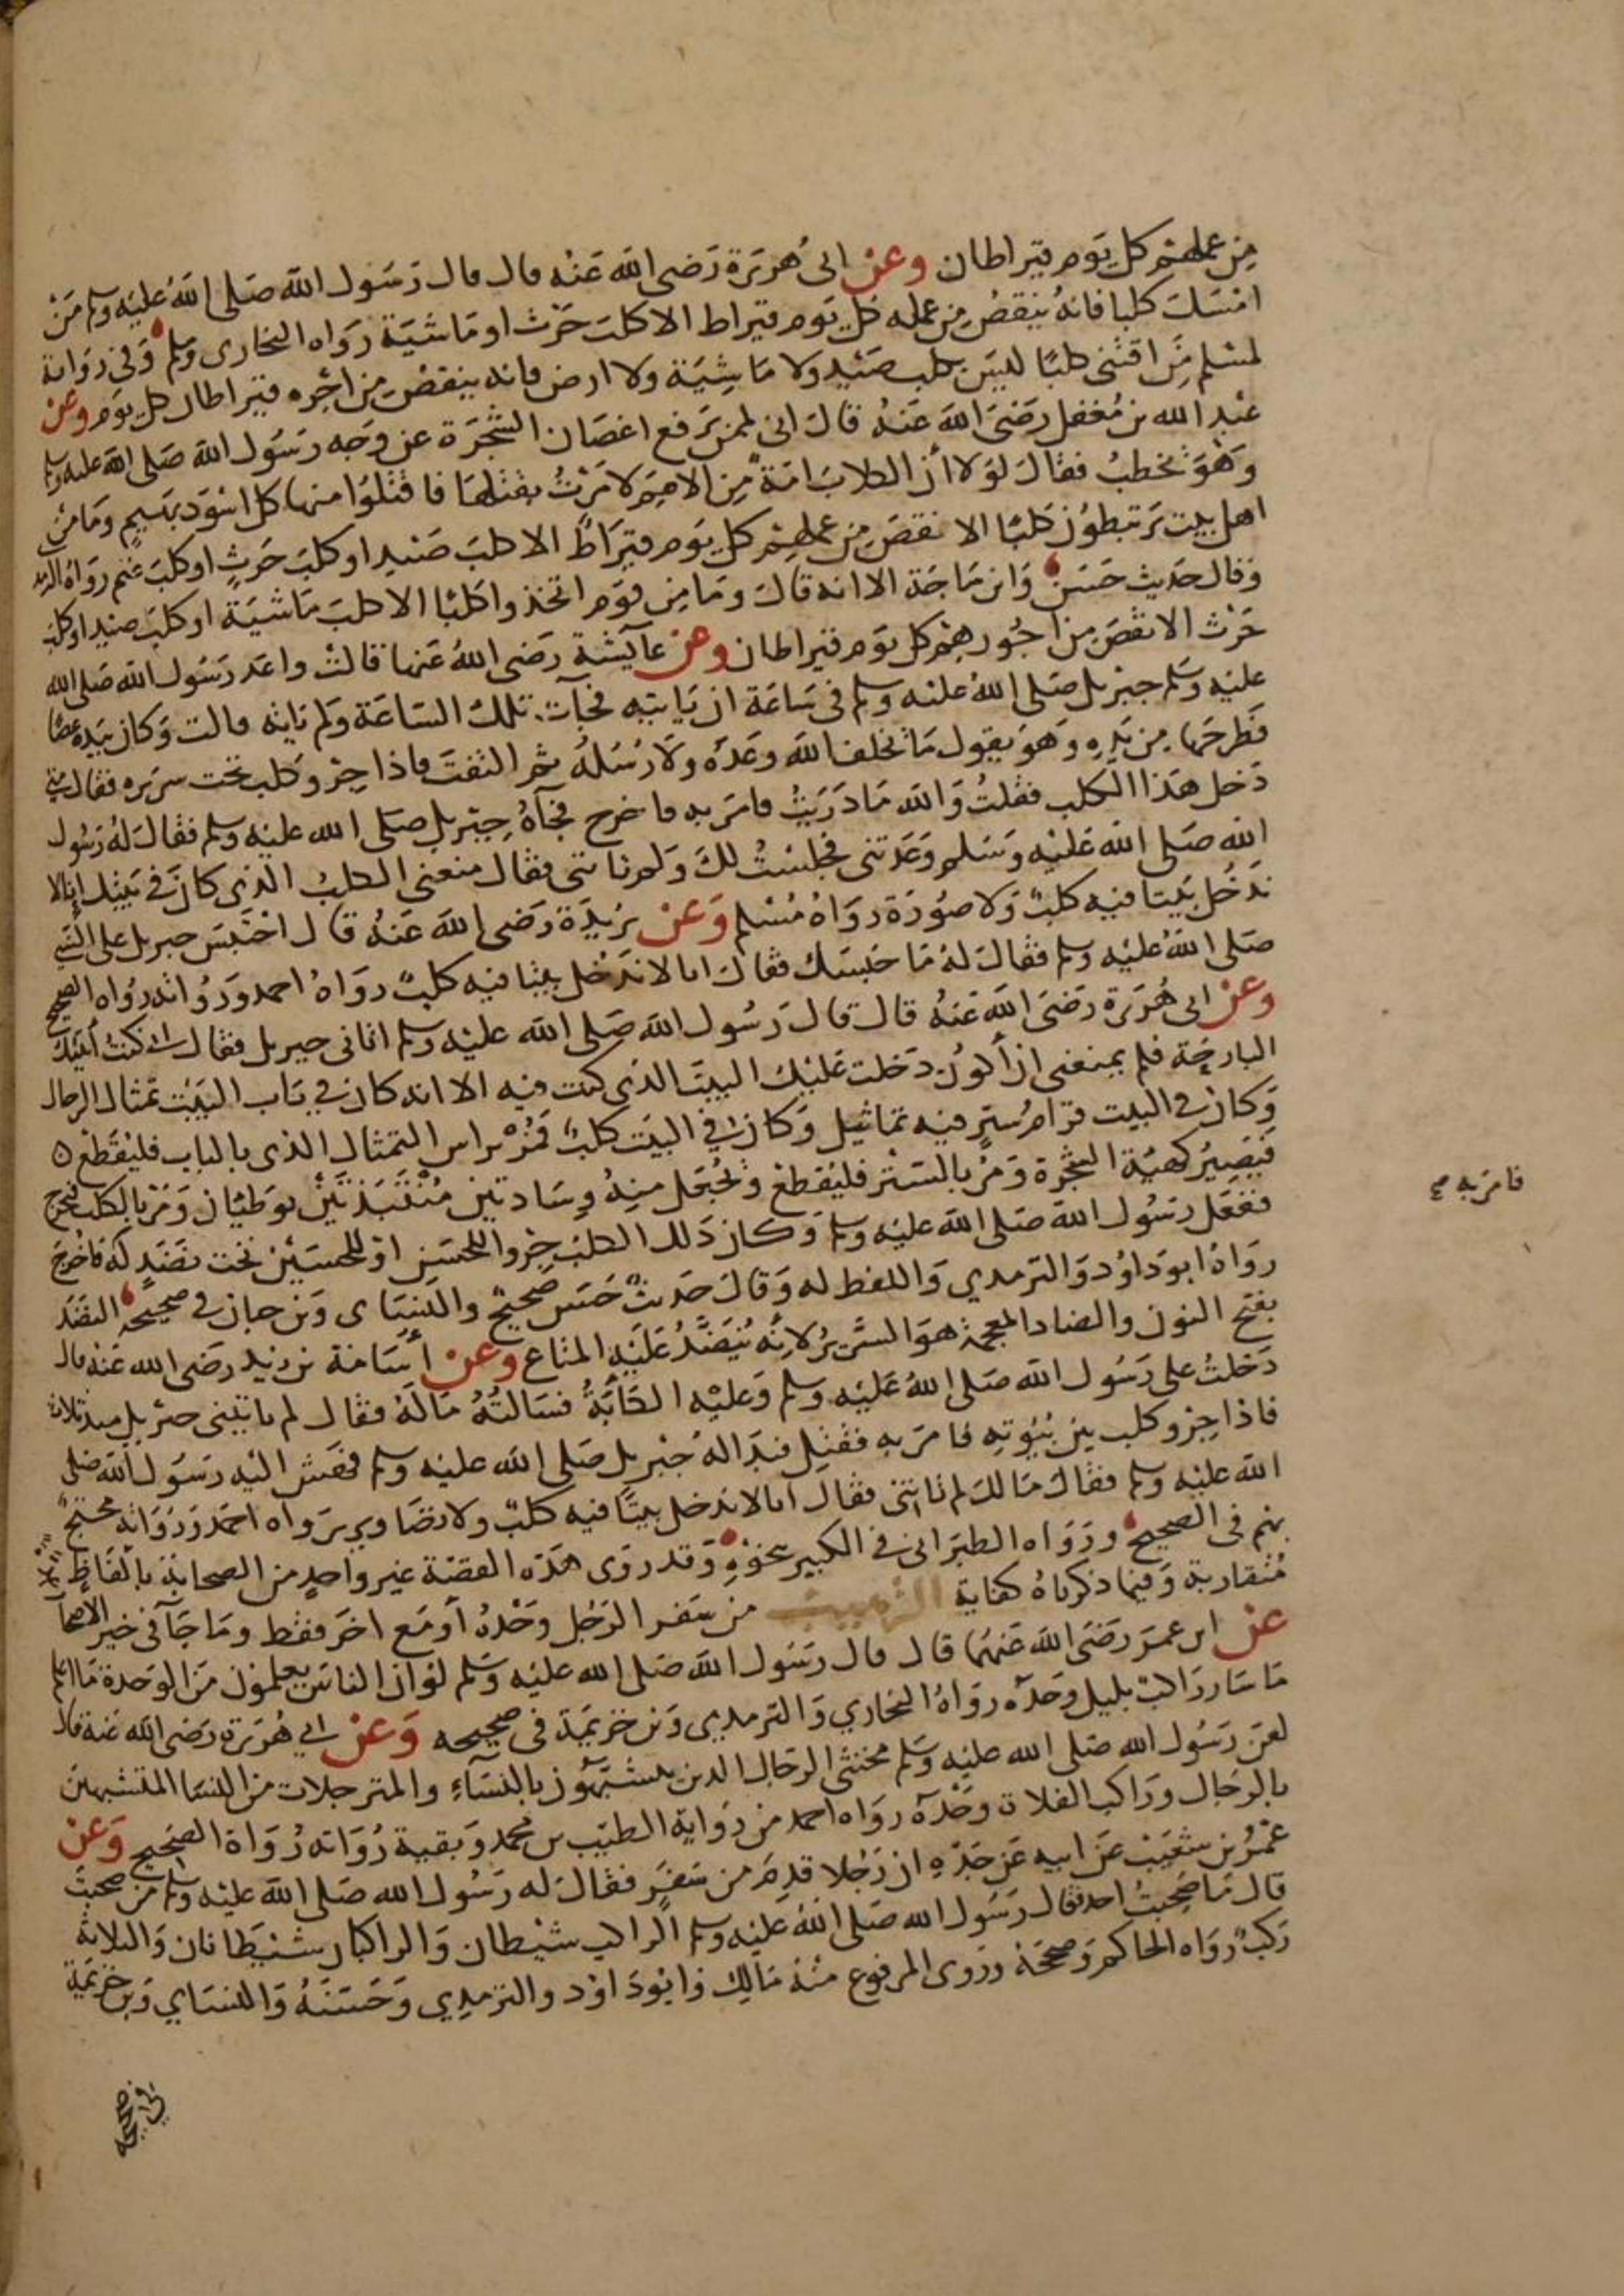 من عملهم كل يوم قيراطان وعن ابى هريرة رضى الله عنه قال قال رسول الله صلى الله عليه وسلم من
امسك كلبا فانه ينقص من عمله كل يوم قيراط الا كلب حرث او ماشية رواه البخارى ومسلم وفى رواية
لمسلم من اقتنى كلبًا ليس بكلب صيد ولا ماشية ولا ارض فانه ينقص من اجره قيراطان كل يوم وعن
عبد الله بن مغفل رضى الله عنه قال انى لممن يرفع اغصان الشجرة عن وجه رسول الله صلى الله عليه وسلم
وهو يخطب فقال لولا أن الكلاب امة من الامم لامرت بقتلها فاقتلوا منها كل اسود بهيم وما من
اهل بيت يرتبطون كلبًا الا نقص من عملهم كل يوم قيراط الا كلب صيد او كلب حرث او كلب غنم رواه الترمذ
وقال حديث حسن وابن ماجة الا انه قال وما من قوم اتخذوا كلبا الا كلب ماشية او كلب صيد او كلب
حرث الا نقص من اجورهم كل يوم قيراطان وعن عآيشة رضى الله عنها قالت واعد رسول الله صلى الله
عليه وسلم جبريل صلى الله عليه وسلم فى ساعة ان ياتيه فجآت تلك الساعة ولم ياته قالت وكان بيده عصًا
فطرحها من يده وهو يقول ما يخلف الله وعده ولا رسله ثم التفت فاذا جرو كلب تحت سريره فقال متى
دخل هذا الكلب فقلت والله ما دريت فامر به فاخرج فجآه جبريل صلى الله عليه وسلم فقال له رسول
الله صلى الله عليه وسلم وعدتنى فجلست لك ولم تاتنى فقال منعنى الكلب الذى كان فى بيتك إنا لا
ندخل بيتا فيه كلب ولا صورة رواه مسلم وعن بريدة رضى الله عنه قال احتبس جبريل على النبي
صلى الله عليه وسلم فقال له ما حبسك فقال انا لا ندخل بيتا فيه كلب رواه احمد ورواته رواه الصحيح
وعن ابى هريرة رضى الله عنه قال قال رسول الله صلى الله عليه وسلم اتانى جبريل فقال انى كنت أتيتك
البارحة فلم يمنعنى ان أكون دخلت عليك البيت الذى كنت فيه الا انه كان في باب البيت تمثال الرجال
وكان في البيت قرام ستر فيه تماثيل وكان في البيت كلب فمر براس التمثال الذى بالباب فليقطع
فيصير كهية الشجرة ومر بالستر فليقطع ويجعل منه وسادتين منتبذتين يوطيان ومر بالكلب فيخرج
ففعل رسول الله صلى الله عليه وسلم وكان ذلك الكلب جروا للحسن او للحسين تحت نضد له فاخرج
رواه ابو داود والترمدي واللفظ له وقال حديث حسن صحيح والنسآى وبن حبان في صحيحه النضد
بفتح النون والضاد المعجمة هو السرير لانه ينضد عليه المتاع وعن أسامة بن زيد رضى الله عنه قال
دخلت على رسول الله صلى الله عليه وسلم وعليه الكآبة فسالته ما له فقال لم ياتينى جبريل منذ ثلاث
فاذا جرو كلب بين بيوته فامر به فقتل فبدا له جبريل صلى الله عليه وسلم فهش اليه رسول الله صلى
الله عليه وسلم فقال مالك لم تاتنى فقال انا لا ندخل بيتًا فيه كلب ولا تصاوير رواه احمد ورواته محتج
بهم فى الصحيح ورواه الطبرانى فى الكبير بنحوه وقد روى هذه القصة غير واحد من الصحابة بألفاظ
متقاربة وفيما ذكرناه كفاية الترهيب من سفر الرجل وحده أو مع اخر فقط وما جآ فى خير الاصحا
عن ابن عمر رضى الله عنهما قال قال رسول الله صلى الله عليه وسلم لو ان الناس يعلمون من الوحدة ما اعلم
ما سار راكب بليل وحده رواه البخاري والترمدى وبن خزيمة فى صحيحه وعن ابي هريرة رضى الله عنه قال
لعن رسول الله صلى الله عليه وسلم مخنثى الرجال الدين يتشبهون بالنسآء والمترجلات من النسا المتشبهين
بالرجال وراكب الفلاة وحده رواه احمد من رواية الطيب بن محمد وبقية رواته رواة الصحيح وعن
عمرو بن شعيب عن ابيه عن جده ان رجلا قدم من سفر فقال له رسول الله صلى الله عليه وسلم من صحبت
قال ما صحبت احد فقال رسول الله صلى الله عليه وسلم الراكب شيطان والراكبان شيطانان والثلاثة
ركب رواه الحاكم وصححه وروى المرفوع منه مالك وابو داود والترمدي وحسنه والنساي وبن خزيمة
فى صحيحه
فامر به صح